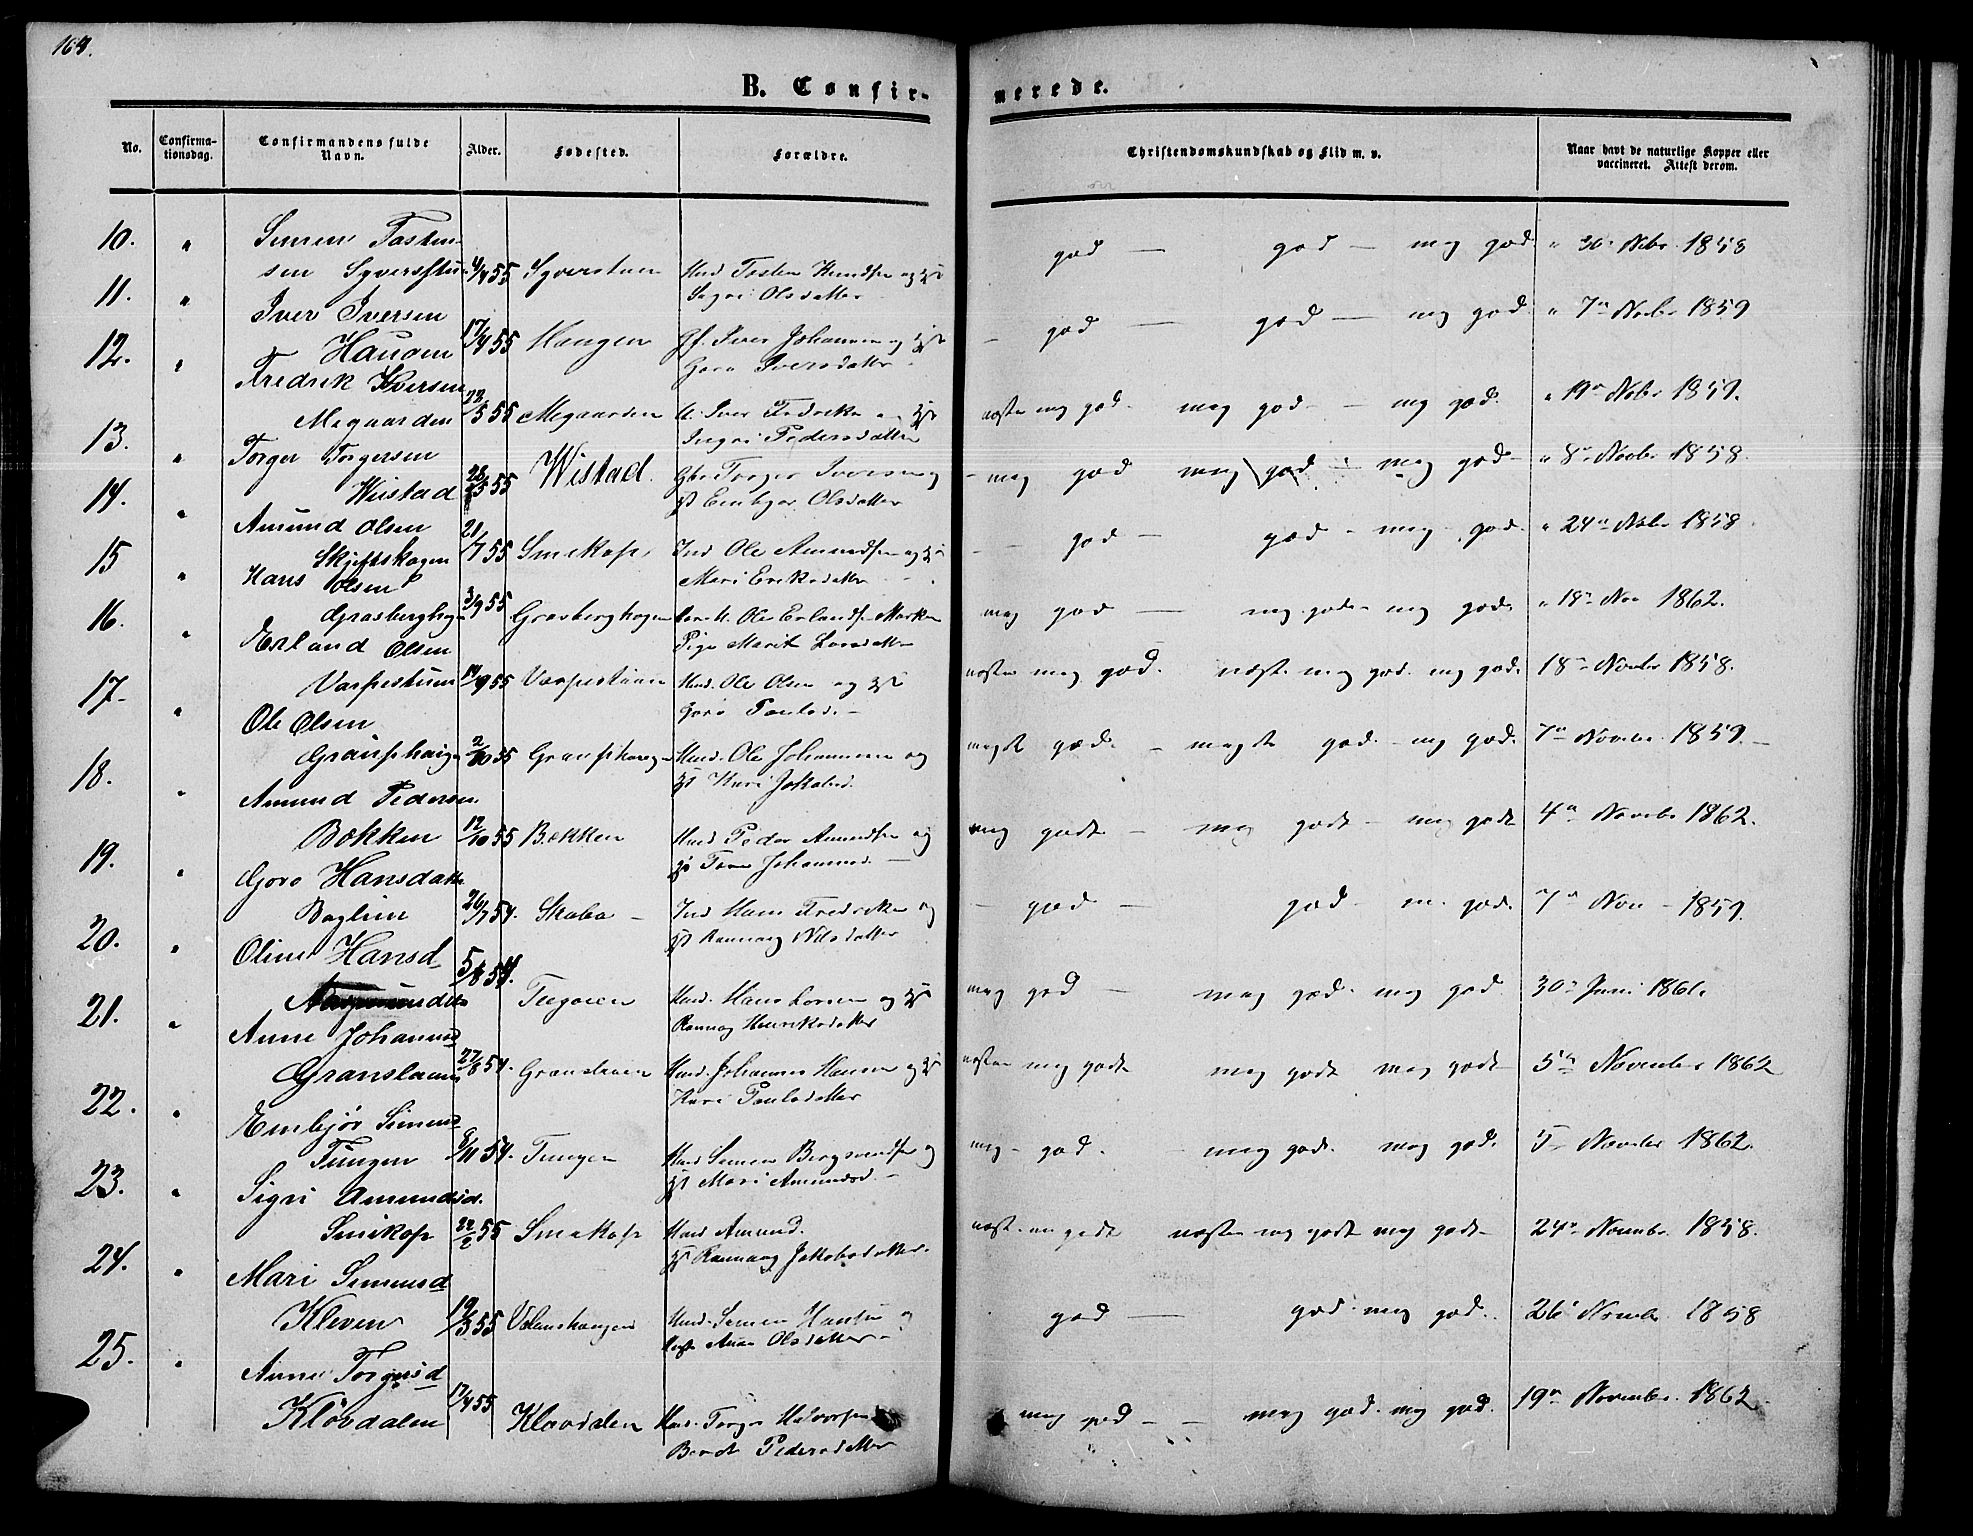 164.
B. Confir-
merede.
No.
Confirma-
tionsdag.
Confirmandens fulde
Navn.
Alder.
Fødested.
Forældre.
Christendomskundskab og Flid m. v.
Naar havt de naturlige Kopper eller
vaccineret. Attest derom.
10. " Simen Tosten-
sen 4/4 55 Huusm. Tosten Knudsen og
Sigri Olsdatter
god — god — meg god " 30 Nvbr 1858
11. " Iver Iversen
Haugen 17/4 55 Haugen Gf. Iver Johannesen og
Goro Iversdatter
god — god — meg god " 7de Novbr 1859
12. " Fredrik Iversen
Megaarden 28/5 55 Megaarden Iver Fredriksen og
Ingri Pedersdatter
næsten meg god. meg god — meg god. " 19de Nvbr 1859.
13. " Torger Torgersen
Wistad 28/5 55 Wistad. Torger Iversen og
Embjør Olsdatter
meg god meg god — meg god " 8de Novbr 1858
14. " Amund Olsen
21/7 55 Smekop Ind Ole Amundsen og
Mari Eriksdatter
god — god — meg god " 24de Nvbr 1858.
15 " Hans Olsen
Grasberghagen 3/9 55 Grasberghagen Ole Erlandsen
Pige Marit Larsdatter
meg god — meg god — meg god " 18de Nov 1862.
16. " Erland Olsen
14/9 55 Huusm. Ole Olsen og
Goro Paulsd.
næsten meg god. næst. meg god. meg god 18de Novbr 1858.
17 " Ole Olsen
2/10 55 Huusm. Ole Johannesen og
Kari Jakobsd.
meget god. — meget god — meg god. 7de Novbr 1859.
18. " Amund Pedersen
Bækken 12/10 55 Bækken Huusm Peder Amundsen og
Johannesd.
meg godt — meg godt — meg godt 4de Novbr 1862.
19. " Goro Hansdatter
26/7 54. Skabo Ind Hans Fredriksen og
Rannaug Nilsdatter
god — god — m. god. 7de Nov 1859.
20. " Oline Hansd
5/8 54. Huusm. Hans Larsen og
Hendriksdatter
meg god — meg god. meg god 30te Juni 1861.
21. " Anne Johannesd
27/8 54. Huusm. Johannes Hansen og
Kari Paulsdatter
næsten meg godt meg godt meg godt 5te November 1862
22. " Embjør Simensd
Tungen 9/11 54. Tungen Huusm Simen Bergsvendsen og
Mari Amundsd.
meg god. meg god. meg god. 5te November 1862.
23. " Sigri Amundsd.
Smikop 22/2 55 Smekop Huusm Amund
Rannaug Jakobsdatter.
næsten meg godt næsten meg godt meg godt 24de Novembr 1858.
24. " Mari Simensd
Kleven 19/3 55 Huusm. Simen Hansen og
Anne Olsdatter
god — god meg god. 26de Novembr 1858
25. " Anne Torgersd
Kløvdalen 17/4 55 Kløvdalen Huusm. Torger Halvorsen
Berdt Pedersdatter
meg god — meg god. meg god. 19de Novembr 1862